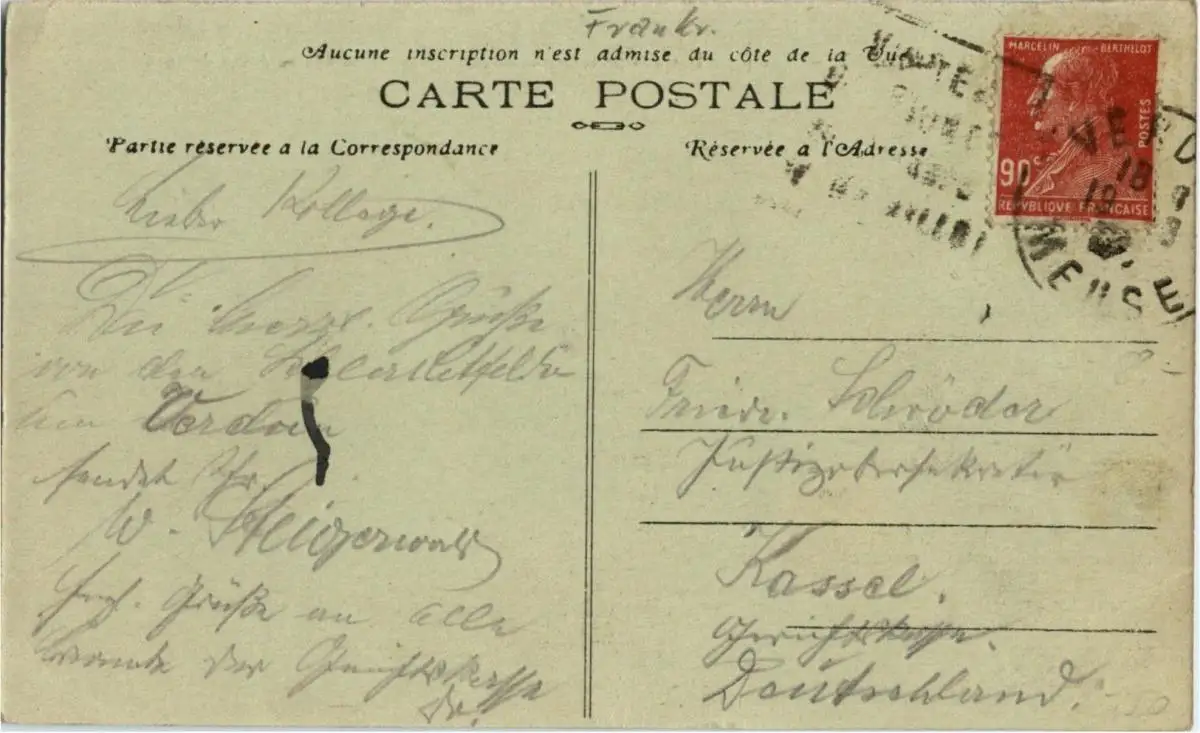 Frankr.
Aucune inscription n'est admise du côté de la Vue
CARTE POSTALE
Partie réservée a la Correspondance
Réservée a l'Adresse
MARCELIN BERTHELOT
POSTES
90c
REPUBLIQUE FRANÇAISE
VERD
18
MEUSE
Lieber Kollege.
Die herzl. Grüße
von den Schlachtfelde
um Verdun
sendet Ihr
W. Steigerwald
Grüße an alle
der Gerichtskasse
Herrn
Friedr. Schröder
Justizobersekretär
Kassel.
Gerichtskasse.
Deutschland.